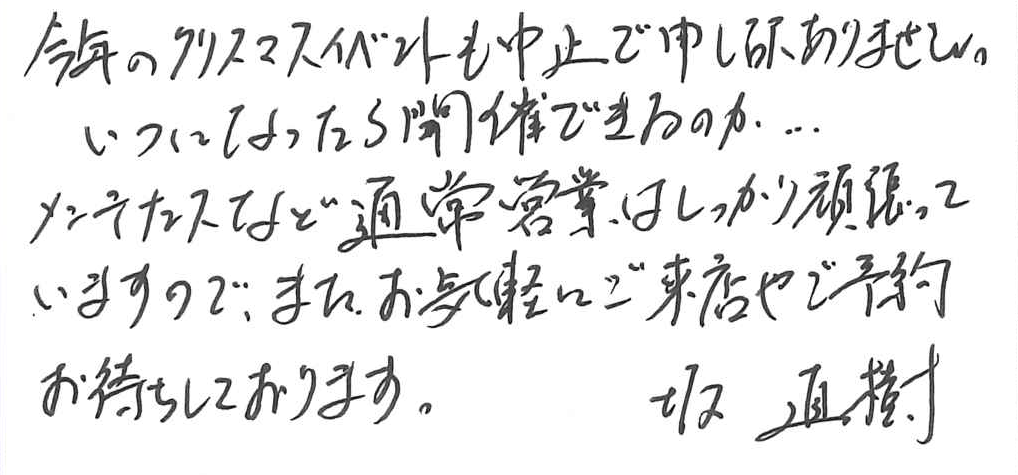 今年のクリスマスイベントも中止で申し訳ありません。
いつになったら開催できるのか・・・
メンテナンスなど通常営業はしっかり頑張って
いますので、またお気軽にご来店やご予約
お待ちしております。 坂 直樹